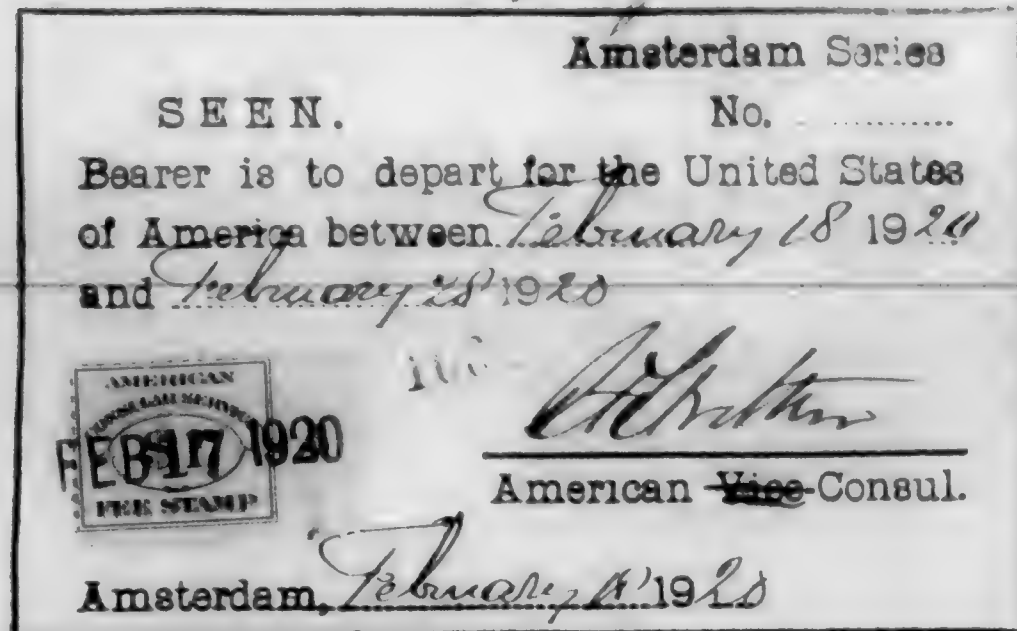 Amsterdam Series
SEEN. No.
Bearer is to depart for the United States
of America between February 18 1920
and February 28 1920
AMERICAN
CONSULAR SERVICE
FEB 17 1920
FEE STAMP
American Vice Consul.
Amsterdam, February 1920